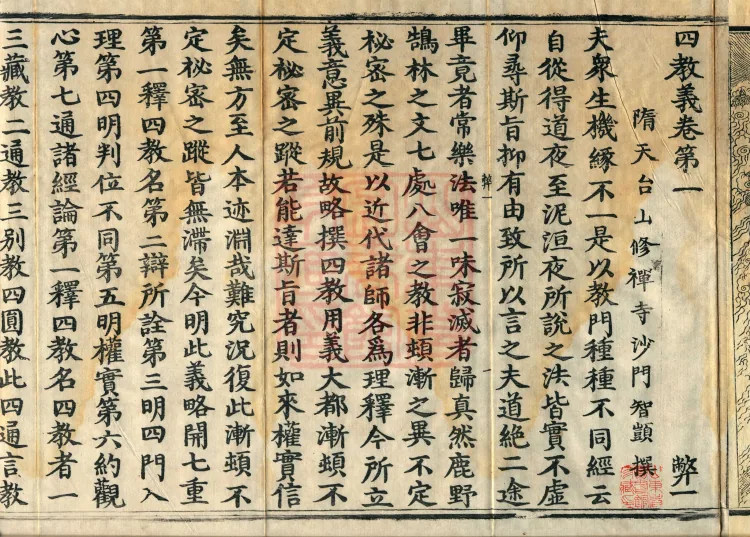 四教義卷第一　弊一
隋天台山修禪寺沙門智顗撰
夫衆生機緣不一是以教門種種不同經云
自從得道夜至泥洹夜所說之法皆實不虛
仰尋斯旨抑有由致所以言之夫道絕二途
弊一
畢竟者常樂法唯一味寂滅者歸真然鹿野
鵠林之文七處八會之教非頓漸之異不定
祕密之殊是以近代諸師各爲理釋今所立
義意異前規故略撰四教用義大都漸頓不
定祕密之蹤若能達斯旨者則如來權實信
矣無方至人本迹淵哉難究況復此漸頓不
定祕密之蹤皆無滯矣今明此義略開七重
第一釋四教名第二辯所詮第三明四門入
理第四明判位不同第五明權實第六約觀
心第七通諸經論第一釋四教名四教者一
三藏教二通教三別教四圓教此四通言教